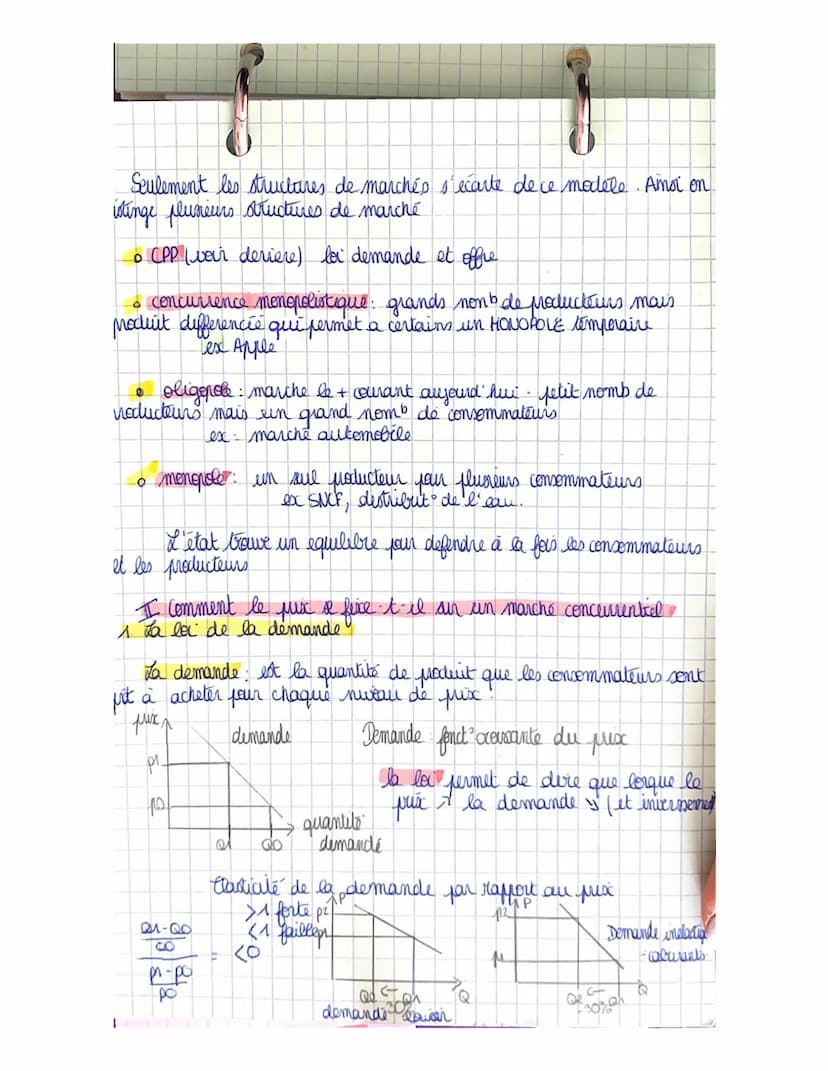 Seulement les structures de marchés s'écarte de ce modèle. Ainsi on
istinge plusieurs structures de marché
CPP (voir deriere) loi demande et offre
concurrence monopolistique : grands nomb de producteurs mais
produit differencié qui permet a certains un MONOPOLE temporaire
ex Apple
oligopole : marche le + courant aujourd'hui - petit nomb de
roducteurs mais un grand nomb de consommateurs
ex : marché automobile
monopole : un seul producteur pour plusieurs consommateurs
ex SNCF, distribut° de l'eau.
L'état trouve un equilibre pour defendre à la fois les consommateurs
et les producteurs
II Comment le prix se fixe-t-il sur un marché concurrentiel
1 La loi de la demande
La demande : est la quantité de produit que les consommateurs sont
prêt à acheter pour chaque niveau de prix.
prix
demande
Demande : fonct° croissante du prix
p1
la loi permet de dire que lorque le
prix ↗ la demande ↘ (et inversement)
p0
quantité
demandé
Q1 Q0
Elasticité de la demande par rapport au prix
>1 forte
<1 faible
Q1-Q0
Q0
p1-p0
p0
= <0
P
p2
p1
Q2 ← Q1
-30%
Q
demande
P
p2
p1
Q2 ← Q1
-30%
Q
Demande